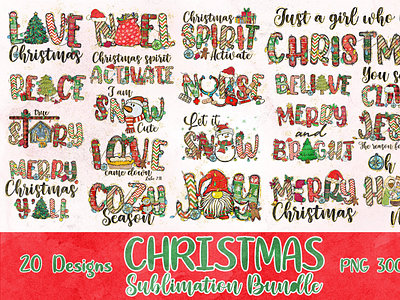 LOVE
Christmas
NOEL
Christmas spirit
ACTIVATE
Christmas
SPIRIT
Activate
Just a girl who
CHRISTM
PEACE
I am
SNOW
Cute
NURSE
BELIEVE
You s
true
STORY
LOVE
came down
Let it
SNOW
MERRY
and
BRIGHT
JES
The reason fo
Oh
MERRY
Christmas
Y'ALL
COZY
Season
JOY
MERRY
Christmas
H
20 Designs
CHRISTMAS
Sublimation Bundle
PNG 300